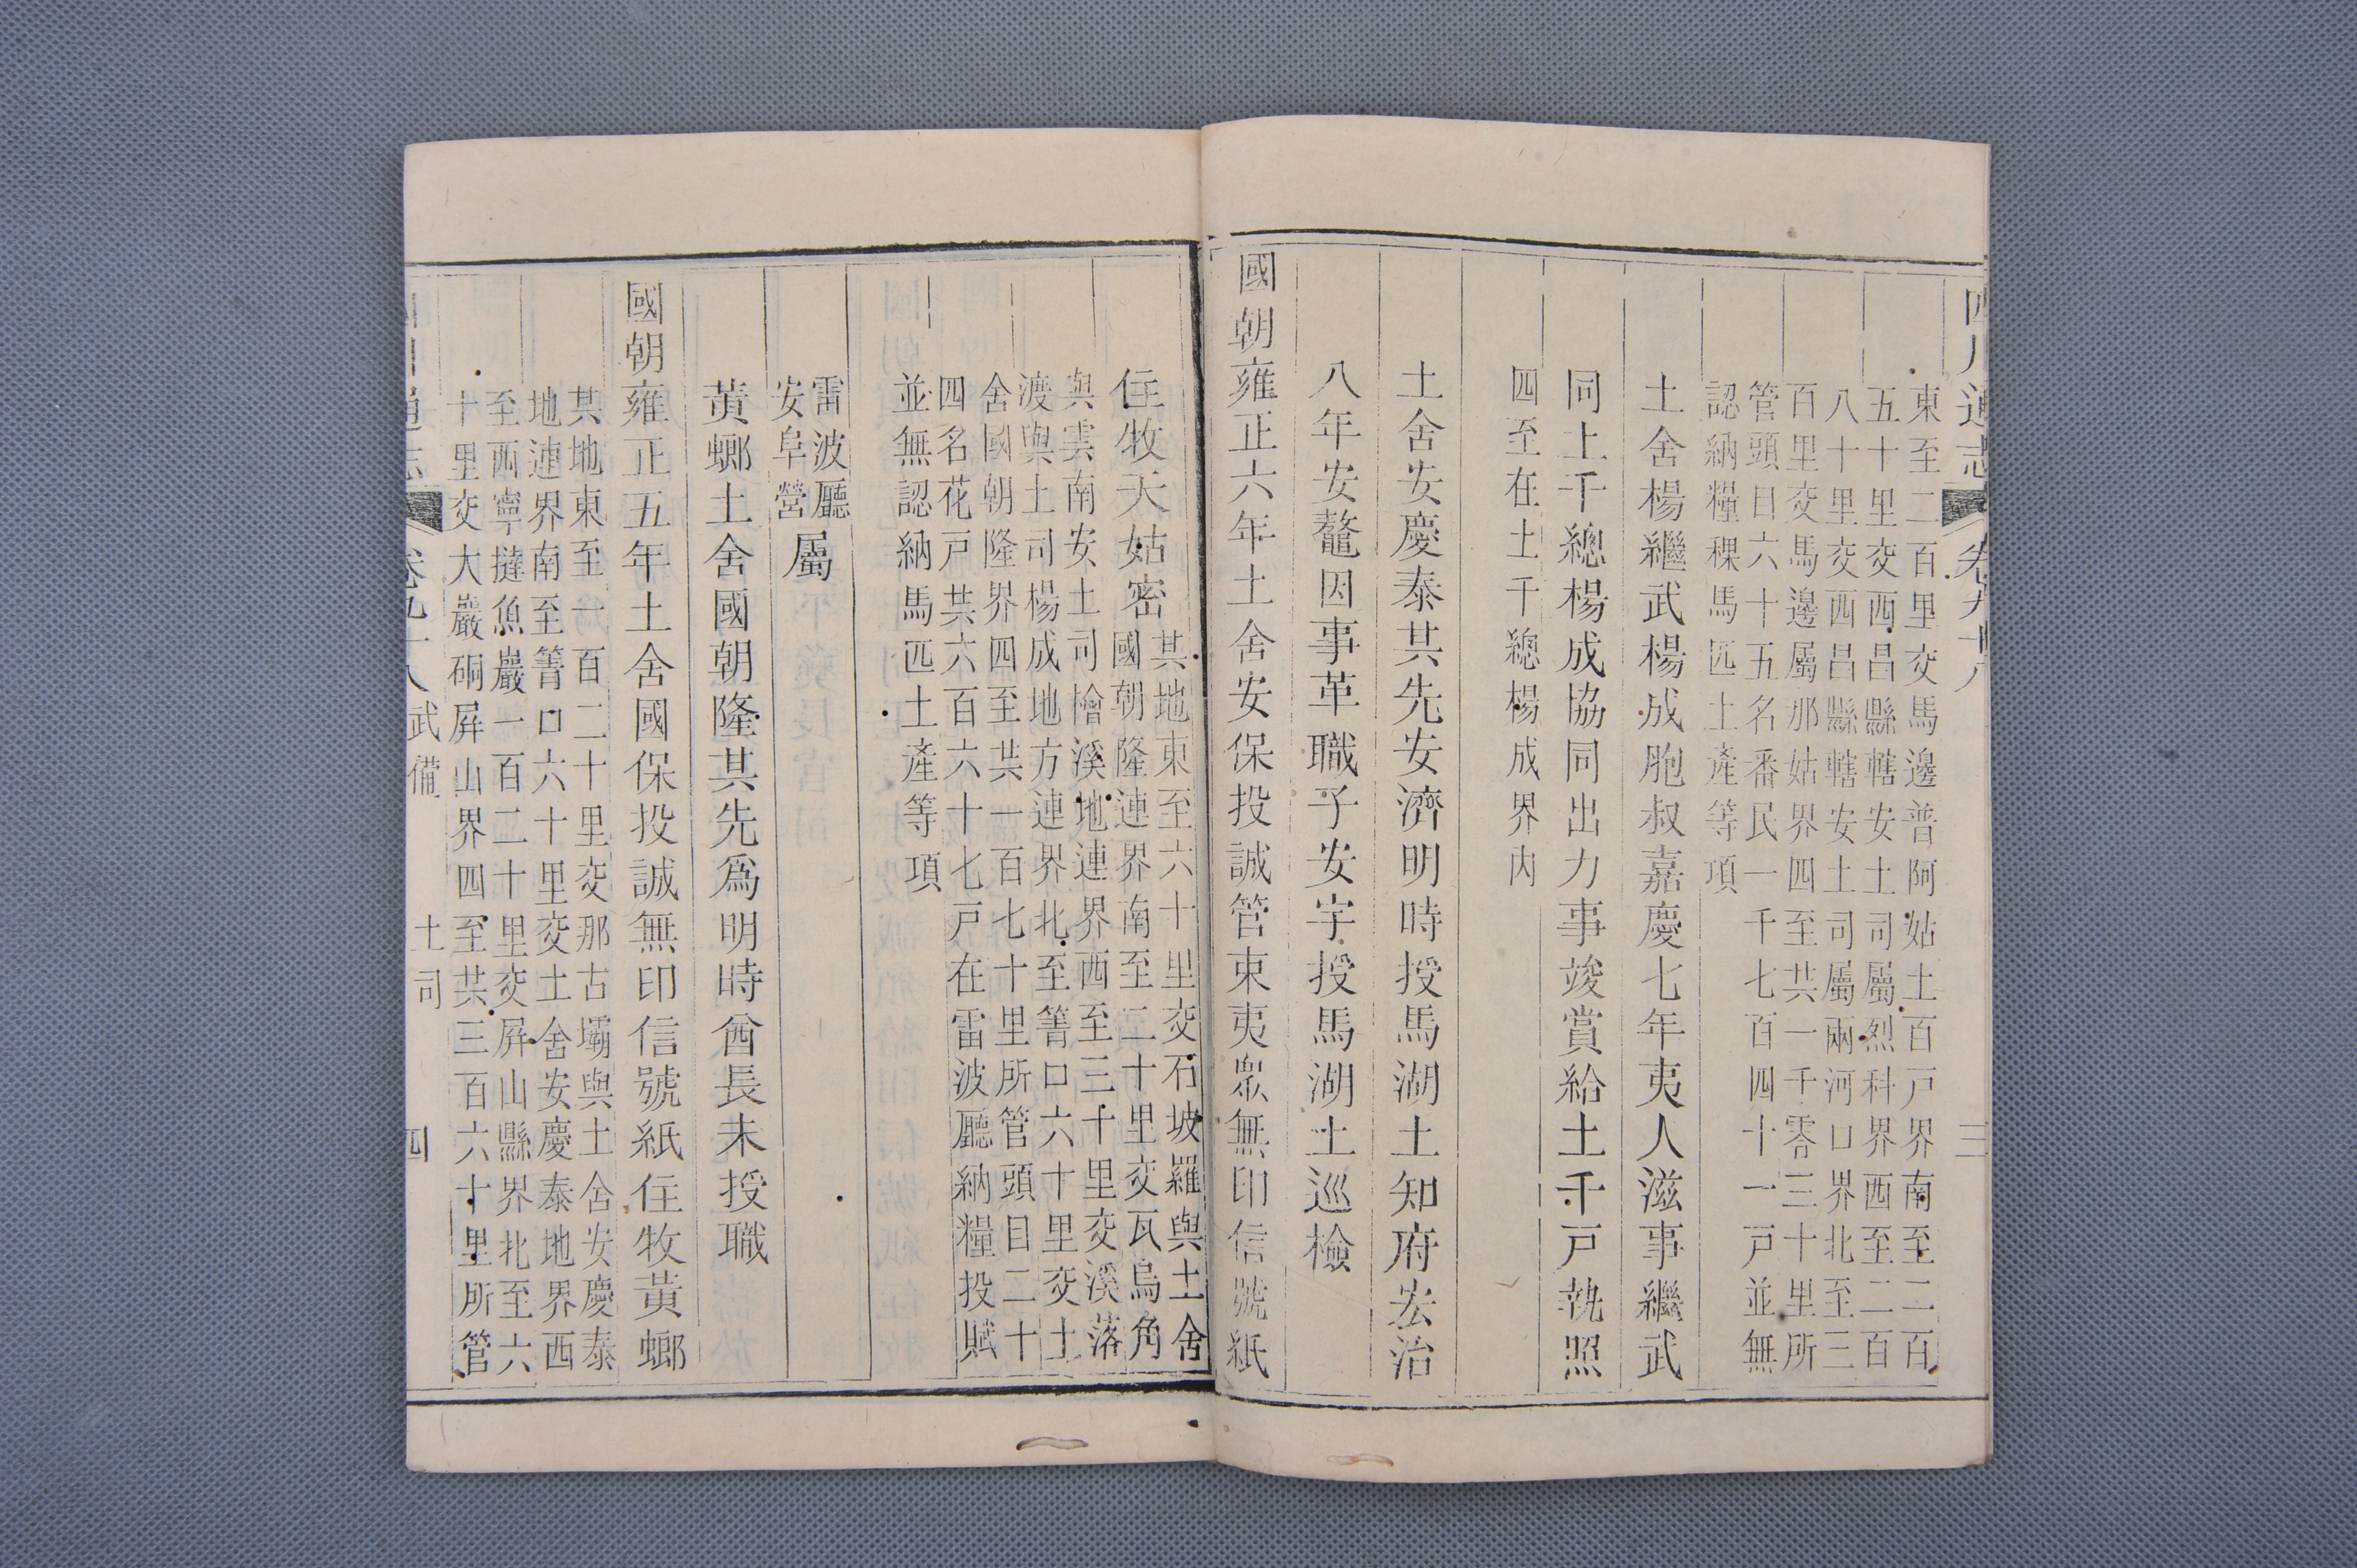 四川通志 卷九十八 三
東至二百里交馬邊普阿姑土百戸界南至二百
五十里交西昌縣轄安土司屬烈科界西至二百
八十里交西昌縣轄安土司屬兩河口界北至三
百里交馬邊屬那姑界四至共一千零三十里所
管頭目六十五名番民一千七百四十一戸並無
認納糧稞馬匹土產等項
土舍楊繼武楊成胞叔嘉慶七年夷人滋事繼武
同土千總楊成協同出力事竣賞給土千戸執照
四至在土千總楊成界内
土舍安慶泰其先安濟明時授馬湖土知府宏治
八年安鼇因事革職子安宇授馬湖土巡檢
國朝雍正六年土舍安保投誠管束夷眾無印信號紙
住牧大姑密
其地東至六十里交石坡羅與土舍
國朝隆連界南至二十里交瓦烏角
與雲南安土司檜溪地連界西至三十里交溪落
渡與土司楊成地方連界北至箐口六十里交土
舍國朝隆界四至共一百七十里所管頭目二十
四名花戸共六百六十七戸在雷波廳納糧投賦
並無認納馬匹土產等項
雷波廳
安阜營
屬
黃螂土舍國朝隆其先爲明時酋長未授職
國朝雍正五年土舍國保投誠無印信號紙住牧黃螂
其地東至一百二十里交那古壩與土舍安慶泰
地連界南至箐口六十里交土舍安慶泰地界西
至西寧撻魚巖一百二十里交屏山縣界北至六
十里交大巖硐屏山界四至共三百六十里所管
四川通志 卷九十八 武備 土司 四